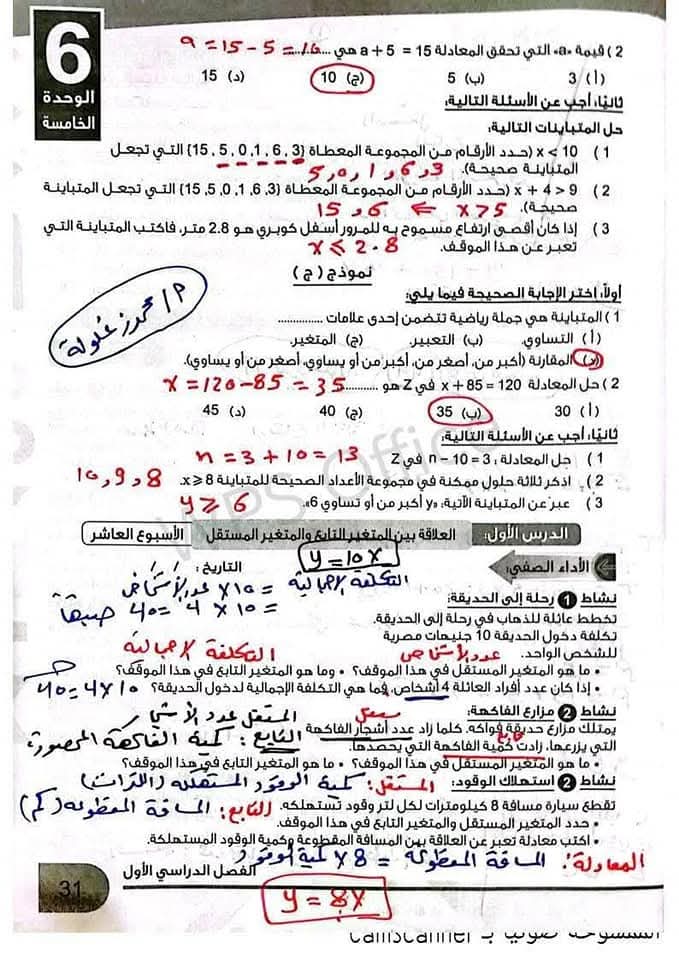 6
الوحدة
الخامسة
2 ) قيمة «a» التي تحقق المعادلة 15 = a + 5 هي ............ a = 15 - 5 = 10
(أ) 3 (ب) 5 (ج) 10 (د) 15
ثانيًا، أجب عن الأسئلة التالية:
حل المتباينات التالية:
1 ) x < 10 (حدد الأرقام من المجموعة المعطاة {15, 5, 0, 1, 6, 3} التي تجعل
المتباينة صحيحة). 3 و 6 و 1 و 0 و 5
2 ) x + 4 > 9 (حدد الأرقام من المجموعة المعطاة {15, 5, 0, 1, 6, 3} التي تجعل المتباينة
صحيحة). x > 5 ⇐ 6 و 15
3 ) إذا كان أقصى ارتفاع مسموح به للمرور أسفل كوبري هو 2.8 متر، فاكتب المتباينة التي
تعبر عن هذا الموقف. x ⩽ 2.8
نموذج (ج)
أولًا، اختر الإجابة الصحيحة فيما يلي:
1 ) المتباينة هي جملة رياضية تتضمن إحدى علامات ...............
(أ) التساوي. (ب) التعبير. (ج) المتغير.
(د) المقارنة (أكبر من، أصغر من، أكبر من أو يساوي، أصغر من أو يساوي).
2 ) حل المعادلة x + 85 = 120 في Z هو ........... x = 120 - 85 = 35
(أ) 30 (ب) 35 (ج) 40 (د) 45
ثانيًا، أجب عن الأسئلة التالية:
1 ) حل المعادلة ، n – 10 = 3 في Z n = 3 + 10 = 13
2 ) اذكر ثلاثة حلول ممكنة في مجموعة الأعداد الصحيحة للمتباينة x ⩾ 8. 8 و 9 و 10
3 ) عبر عن المتباينة الآتية، «y أكبر من أو تساوي 6». y ⩾ 6
الدرس الأول: العلاقة بين المتغير التابع والمتغير المستقل الأسبوع العاشر
الأداء الصفي: التاريخ :
y = 10x
التكلفة الإجمالية = عدد الأشخاص × 10
= 10 × 4 = 40
نشاط 1 رحلة إلى الحديقة:
تخطط عائلة للذهاب في رحلة إلى الحديقة.
تكلفة دخول الحديقة 10 جنيهات مصرية
للشخص الواحد. عدد الأشخاص التكلفة الإجمالية
• ما هو المتغير المستقل في هذا الموقف؟ • وما هو المتغير التابع في هذا الموقف؟
• إذا كان عدد أفراد العائلة 4 أشخاص، فما هي التكلفة الإجمالية لدخول الحديقة؟ 10 × 4 = 40
نشاط 2 مزارع الفاكهة: مستقل المستقل عدد الأشجار
يمتلك مزارع حديقة فواكه. كلما زاد عدد أشجار الفاكهة
التابع: كمية الفاكهة المحصورة
التي يزرعها، زادت كمية الفاكهة التي يحصدها. تابع
• ما هو المتغير المستقل في هذا الموقف؟ • ما هو المتغير التابع في هذا الموقف؟
نشاط 2 استهلاك الوقود: المستقل: كمية الوقود المستهلكة (اللترات)
تقطع سيارة مسافة 8 كيلومترات لكل لتر وقود تستهلكه. التابع: المسافة المقطوعة (كم)
• حدد المتغير المستقل والمتغير التابع في هذا الموقف.
• اكتب معادلة تعبر عن العلاقة بين المسافة المقطوعة وكمية الوقود المستهلكة.
المعادلة: المسافة المقطوعة = 8 × كمية الوقود
y = 8x
الفصل الدراسي الأول
31
WPS Office
الممسوحة ضوئيا بـ CamScanner